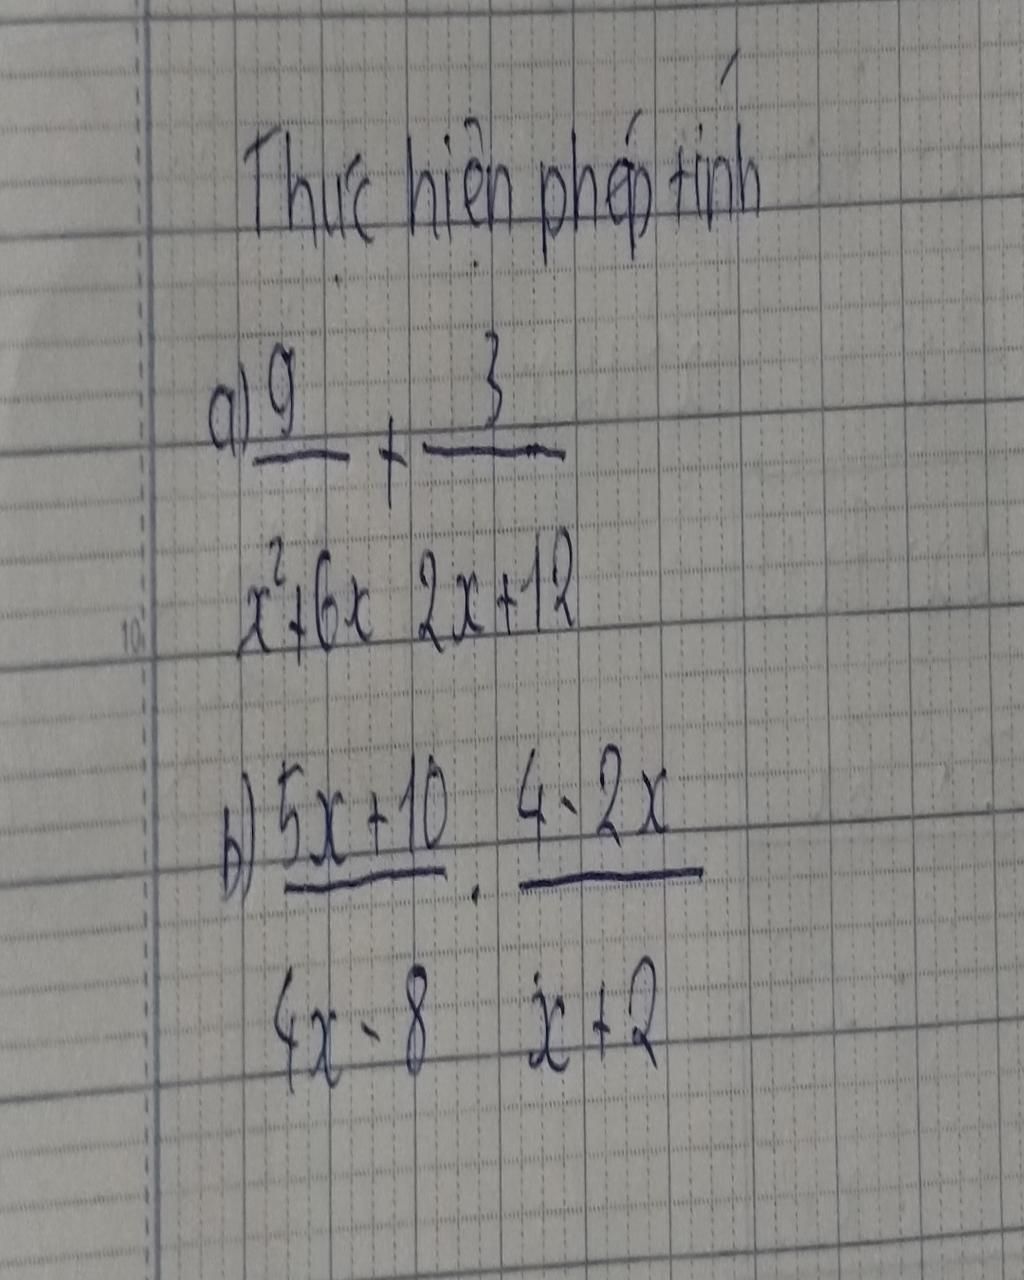 Thực hiện phép tính
a) 9 + 3
x²+6x 2x+12
b) 5x+10 . 4-2x
4x-8 x+2
10